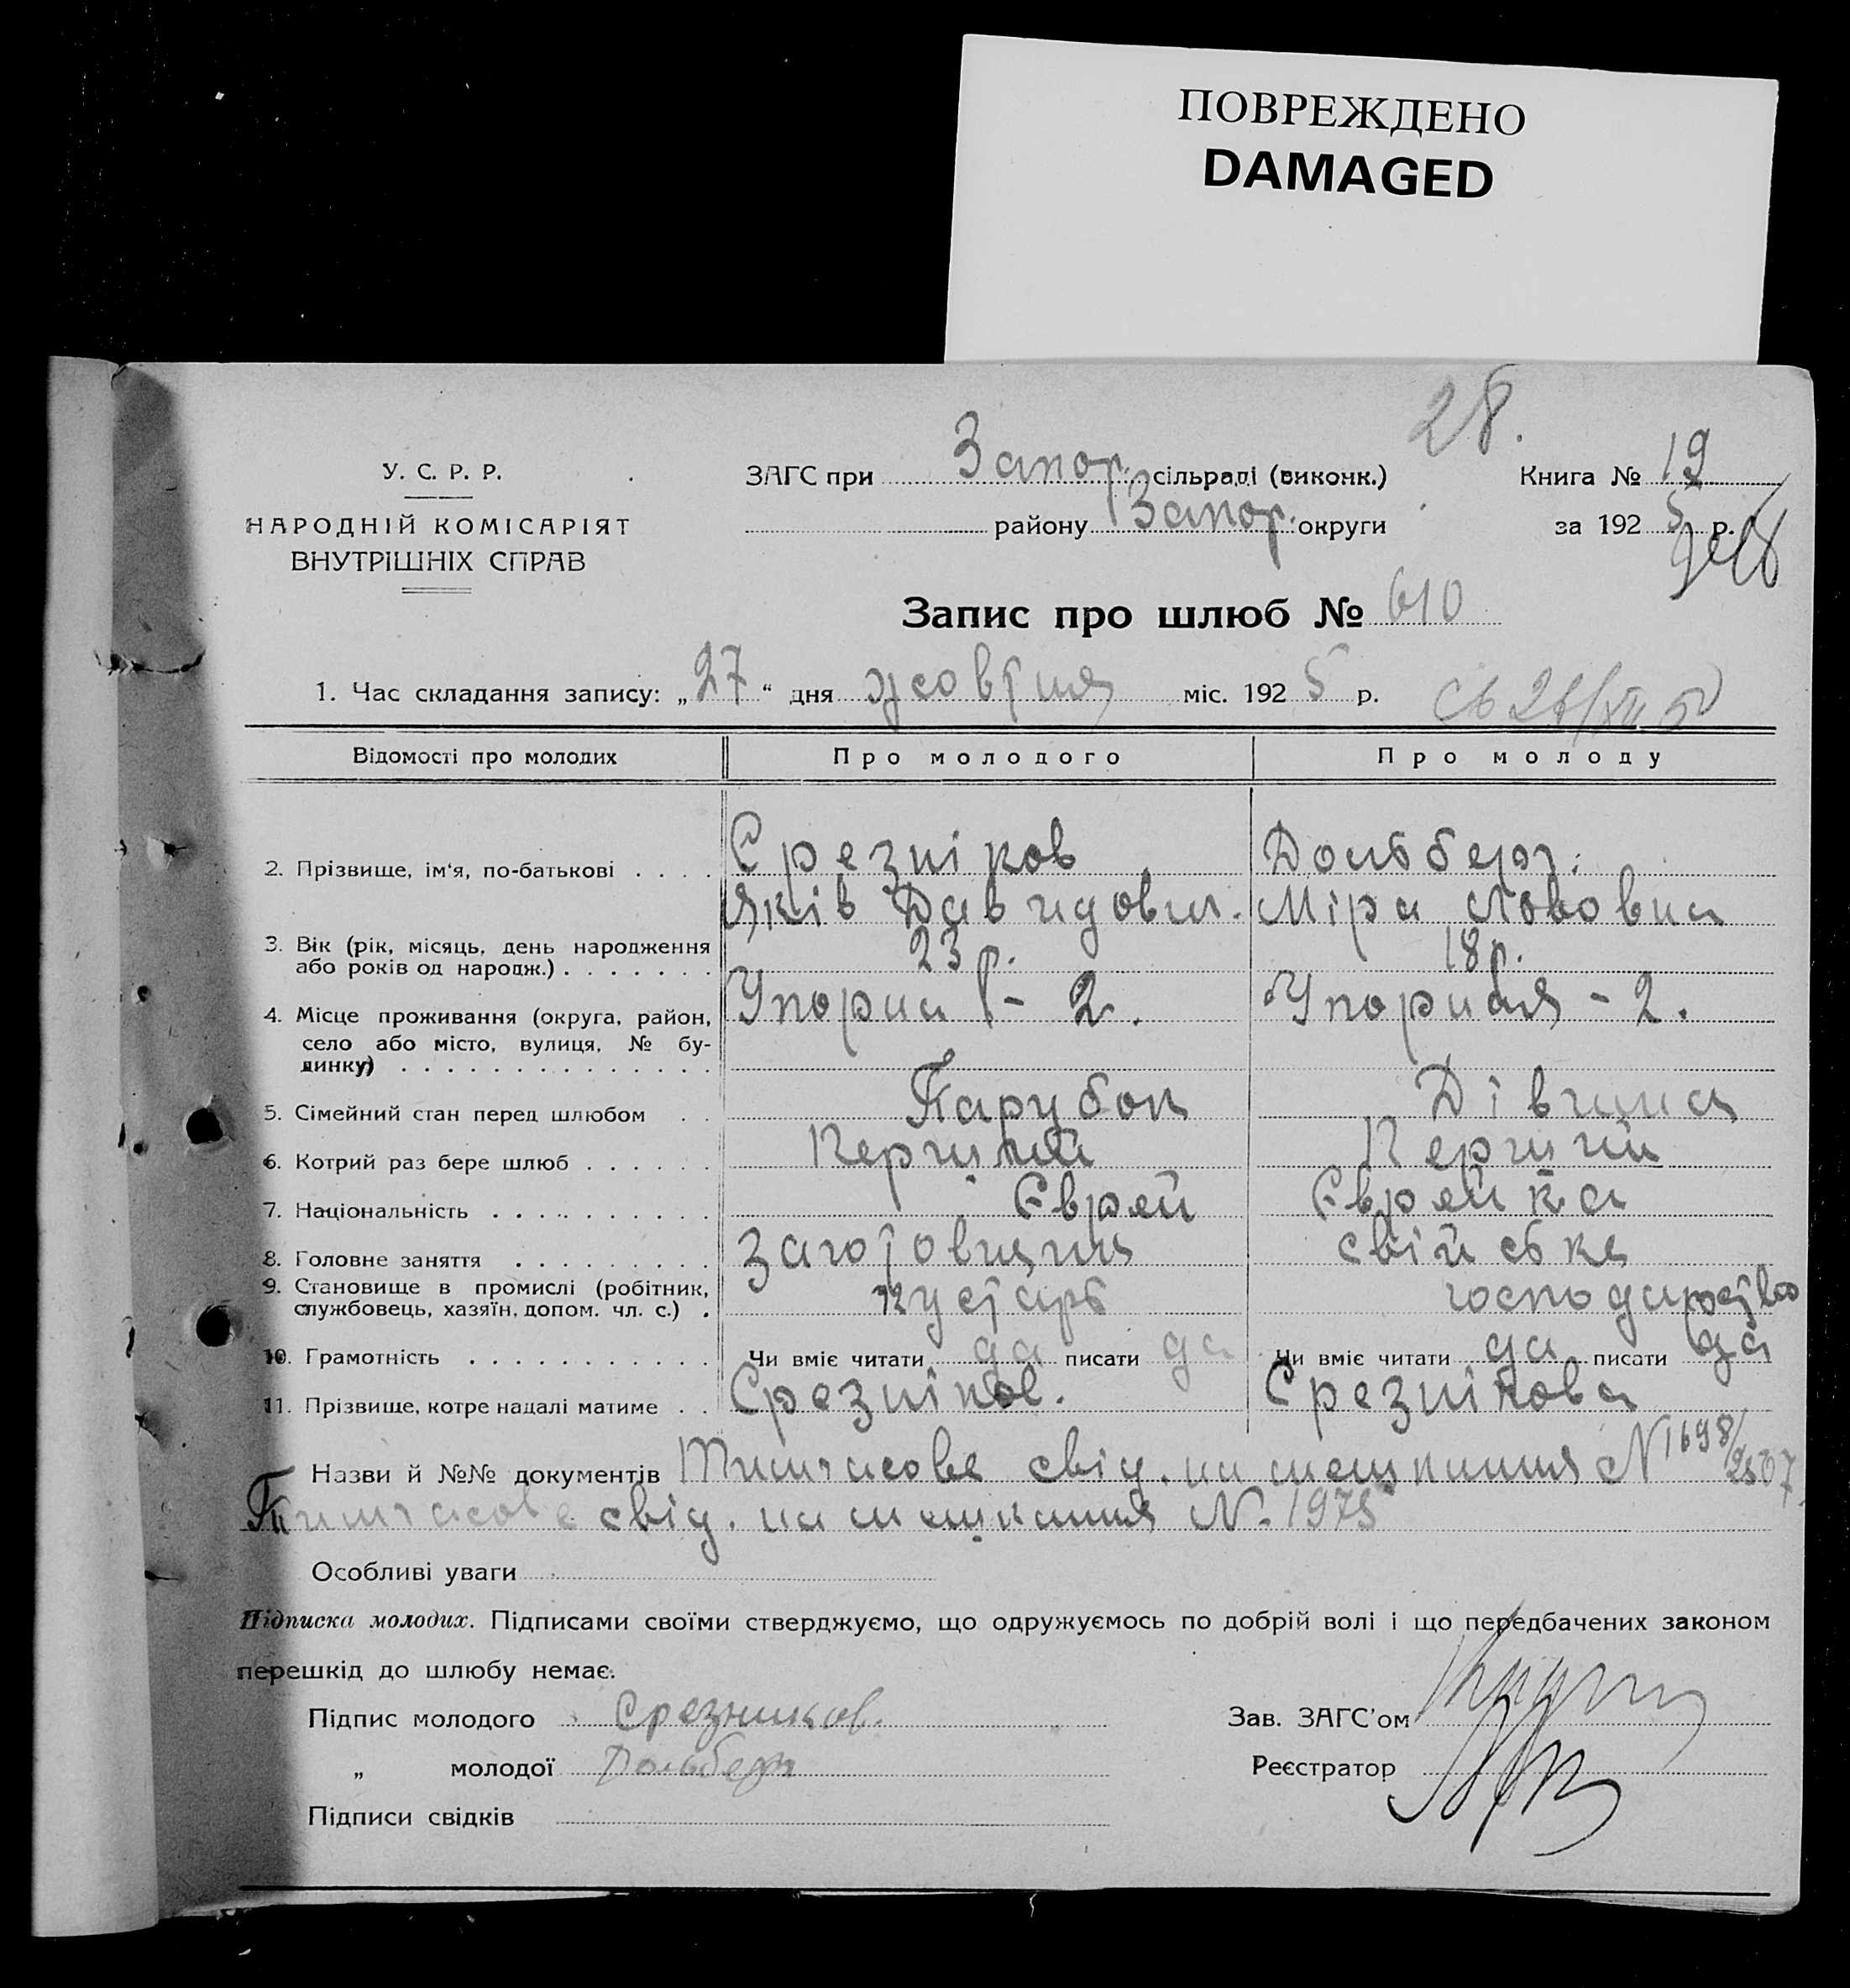 ПОВРЕЖДЕНО
DAMAGED
28.
У. С. Р. Р.
НАРОДНІЙ КОМІСАРІЯТ
ВНУТРІШНІХ СПРАВ
ЗАГС при Запор. сільраді (виконк.)
району Запор. округи
Книга № 19
за 192 5 р.
Запис про шлюб № 610
1. Час складання запису: „27“ дня жовтня міс. 192 5 р.
Відомості про молодих Про молодого Про молоду
2. Прізвище, ім'я, по-батькові . . . . Срезніков Дольберг.
Яків Давидович. Міра Львовна
3. Вік (рік, місяць, день народження
або років од народж.) . . . . . . . 23 р. 18 р.
4. Місце проживання (округа, район,
село або місто, вулиця, № бу-
динку) . . . . . . . . . . . . . . Упорна - 2. Упорная - 2.
5. Сімейний стан перед шлюбом . . Парубок Дівчина
6. Котрий раз бере шлюб . . . . . . Перший Перший
7. Національність . . . . . . . . . . Єврей Єврейка
8. Головне заняття . . . . . . . . . Заготовщик свійська
9. Становище в промислі (робітник,
службовець, хазяїн, допом. чл. с.) . кустарь господарство
10. Грамотність . . . . . . . . . . . Чи вміє читати да писати да Чи вміє читати да писати да
11. Прізвище, котре надалі матиме . . Срезніков. Срезнікова
Назви й №№ документів Тимчасове свід. на мешкання N 1698/2507
Тимчасове свід. на мешкання N. 1975
Особливі уваги
Підписка молодих. Підписами своїми стверджуємо, що одружуємось по добрій волі і що передбачених законом
перешкід до шлюбу немає.
Підпис молодого Срезников.
„ молодої Дольберг
Підписи свідків
Зав. ЗАГС'ом
Реєстратор